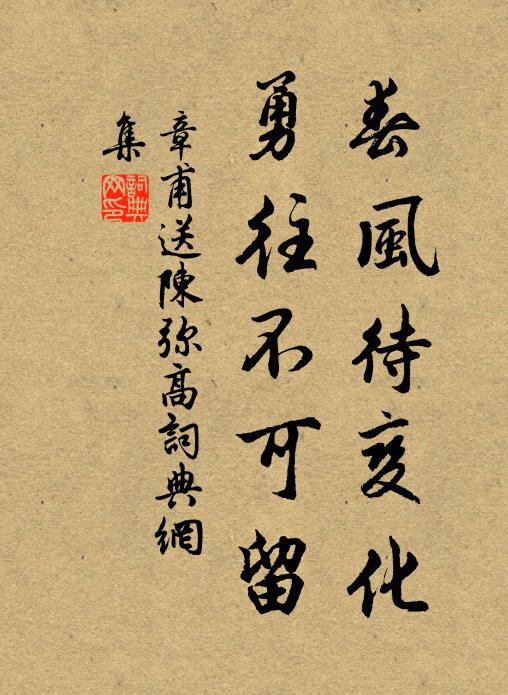 春風待变化
勇往不可留
章甫送陳弥高詞典網
集
詞典
网印